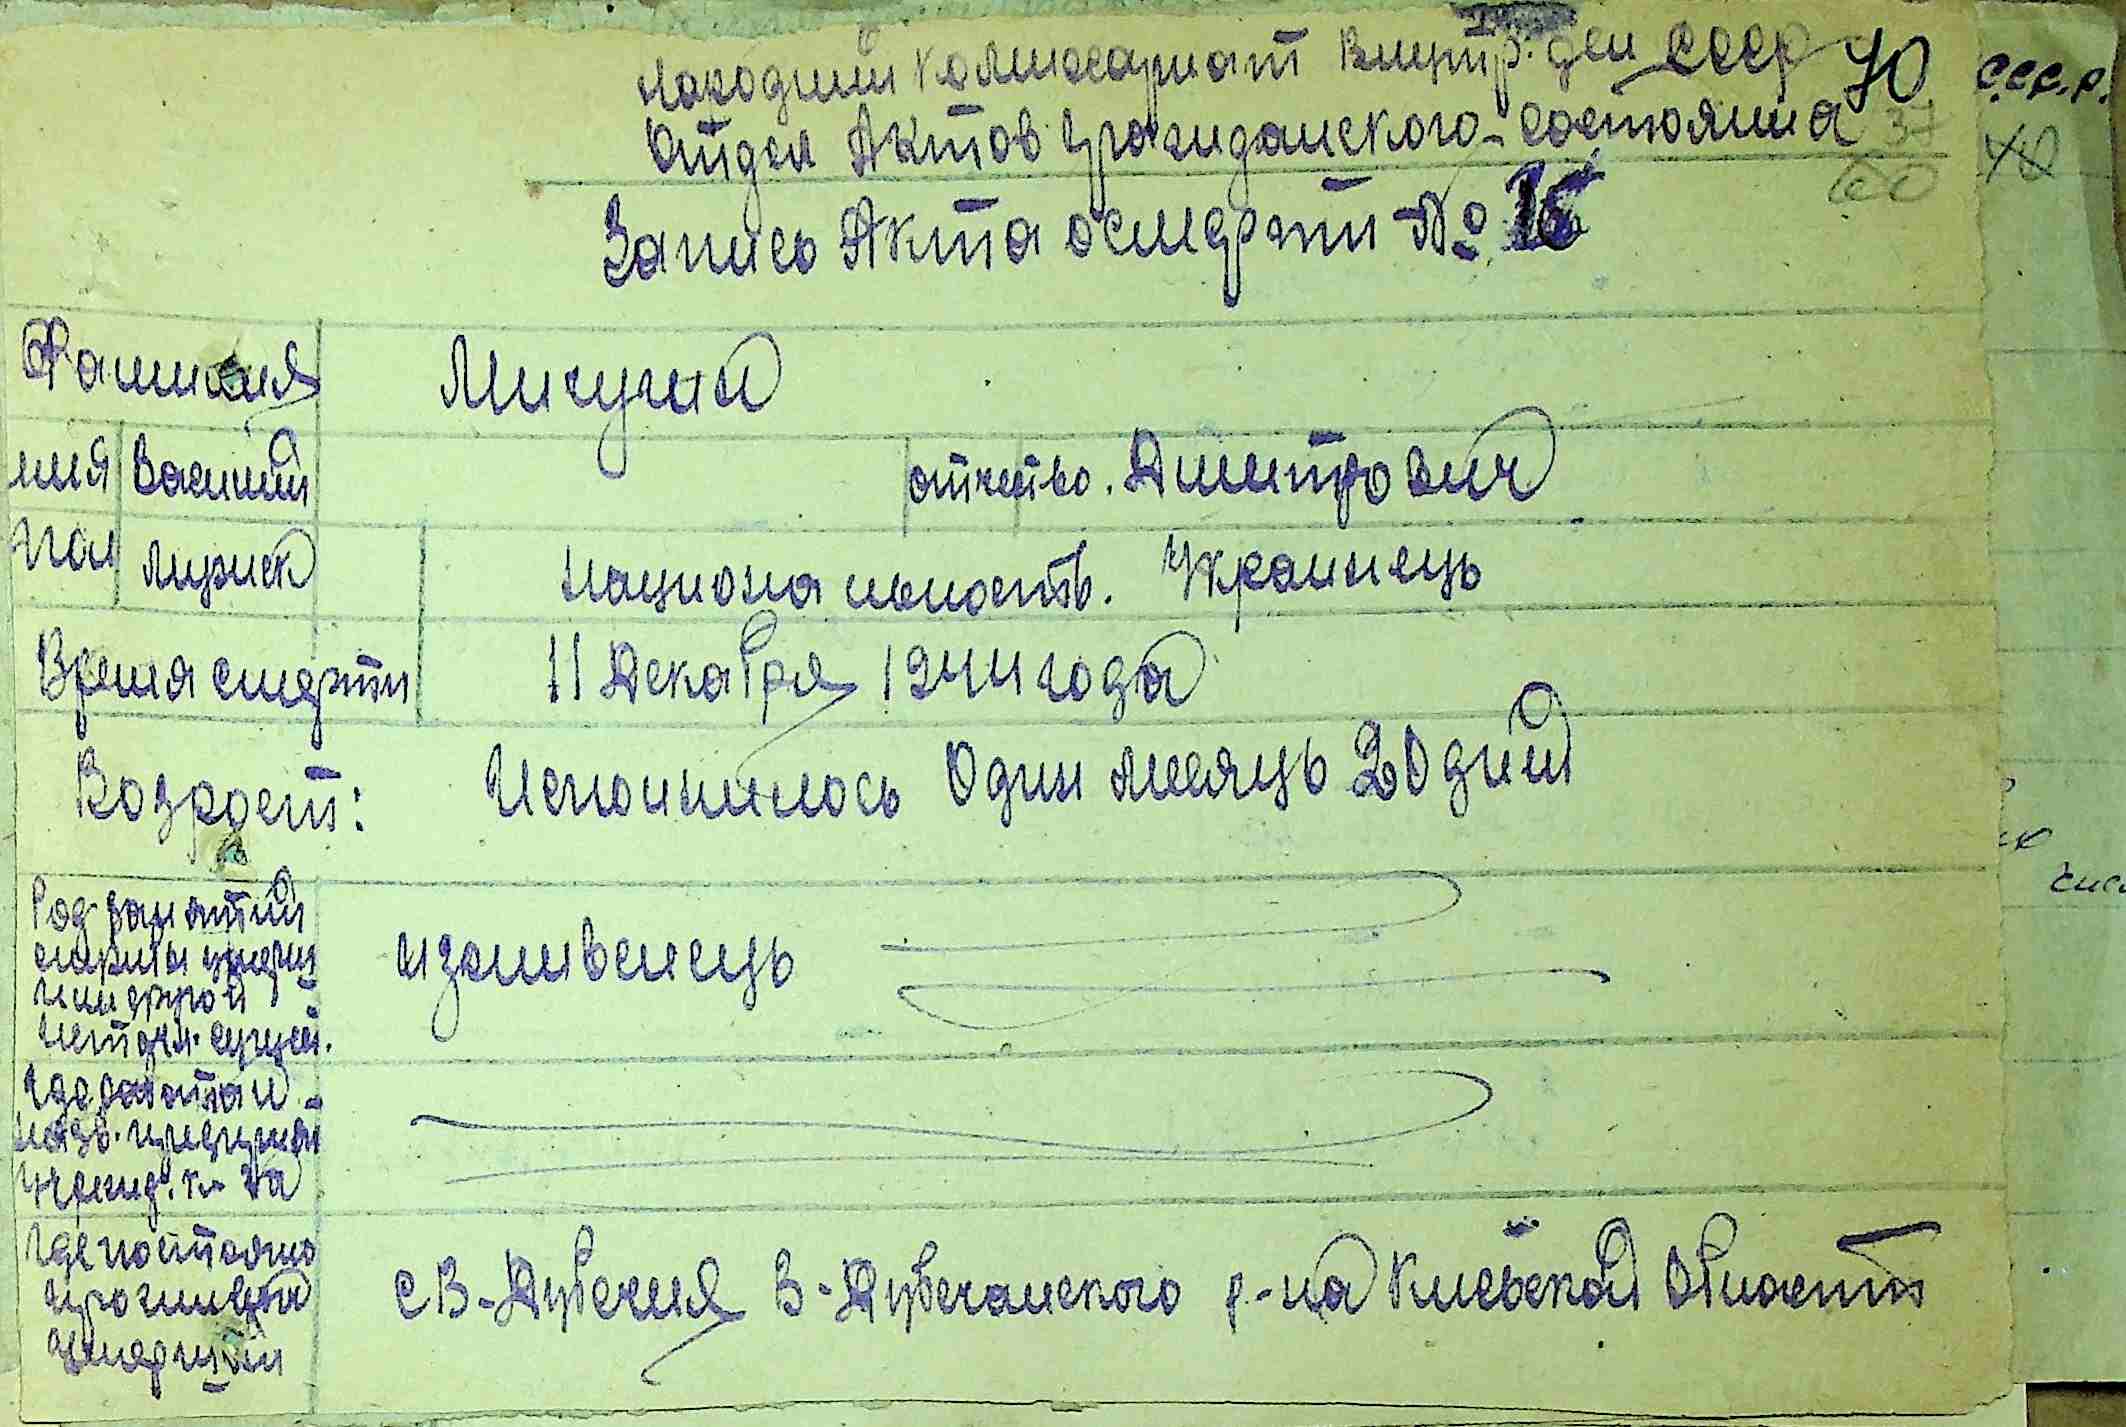 Народний Коммисариат Внутр. дел СССР 70
Отдел Актов Гражданского-состояния 37
60
Запись Акта о смерти № 16
Фамилия Мигуга
имя Василий отчество. Дмитрович
пол мужск национальность. Украинець
Время смерти 11 Декабря 1944 года
Возраст: Исполнилось Один месяць 20 дний
Род занятий
или другой
источн. сущей.
изживенець
где работал
назв. предприят
учрежд. к-за
где постоянно
проживал
умерший
с В-Дубечня В-Дубечанского р-на Киевской Области
СССР.